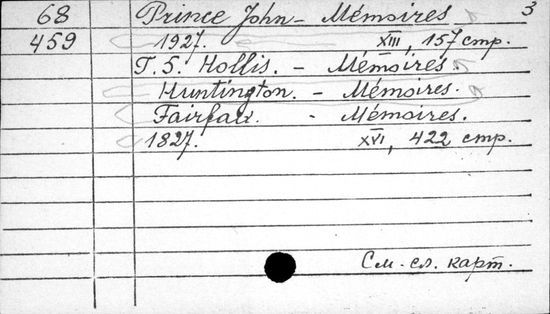 68 Prince John - Mémoires 3
459 1927. XIII, 157 стр.
T. S. Hollis. - Mémoires.
Huntington. - Mémoires.
Fairfax. - Mémoires.
1827. XVI, 422 стр.
См. сл. карт.